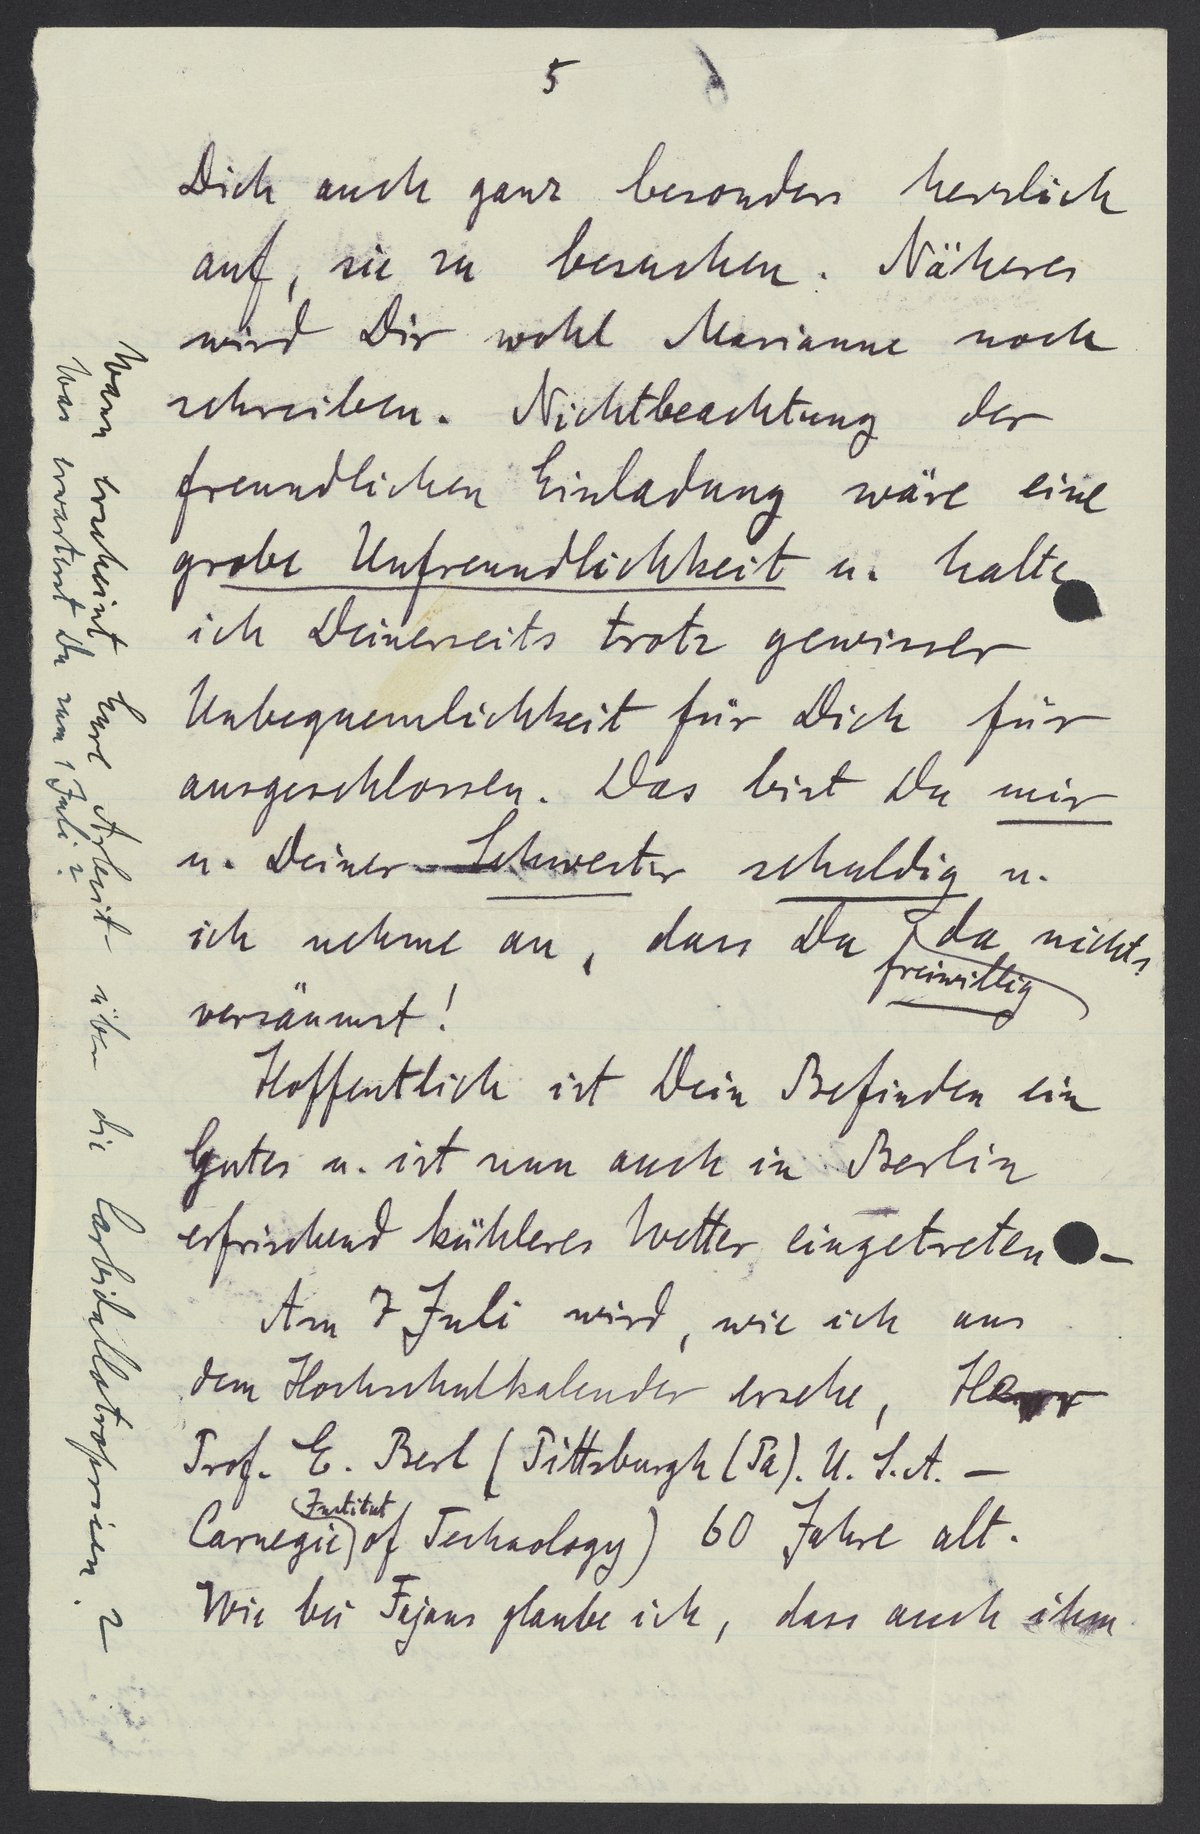 5
Dich auch ganz besonders herzlich
auf, sie zu besuchen. Näheres
wird Dir wohl Marianne noch
schreiben. Nichtbeachtung der
freundlichen Einladung wäre eine
grobe Unfreundlichkeit u. halte
ich Deinerseits trotz gewisser
Unbequemlichkeit für Dich für
ausgeschlossen. Das bist Du mir
u. Deiner Schwester schuldig u.
ich nehme an, dass Du da nichts
freiwillig
versäumst!
Hoffentlich ist Dein Befinden ein
Gutes u. ist nun auch in Berlin
erfrischend kühleres Wetter eingetreten –
Am 7 Juli wird, wie ich aus
dem Hochschulkalender ersehe, Herr
Prof. E. Berl (Pittsburgh (Pa). U.S.A. –
Institut
Carnegie of Technology) 60 Jahre alt.
Wie bei Fajans glaube ich, dass auch ihm
Wann erscheint Eure Arbeit über die Carbidallotropieen?
Was erwartest Du zum 1 Juli?